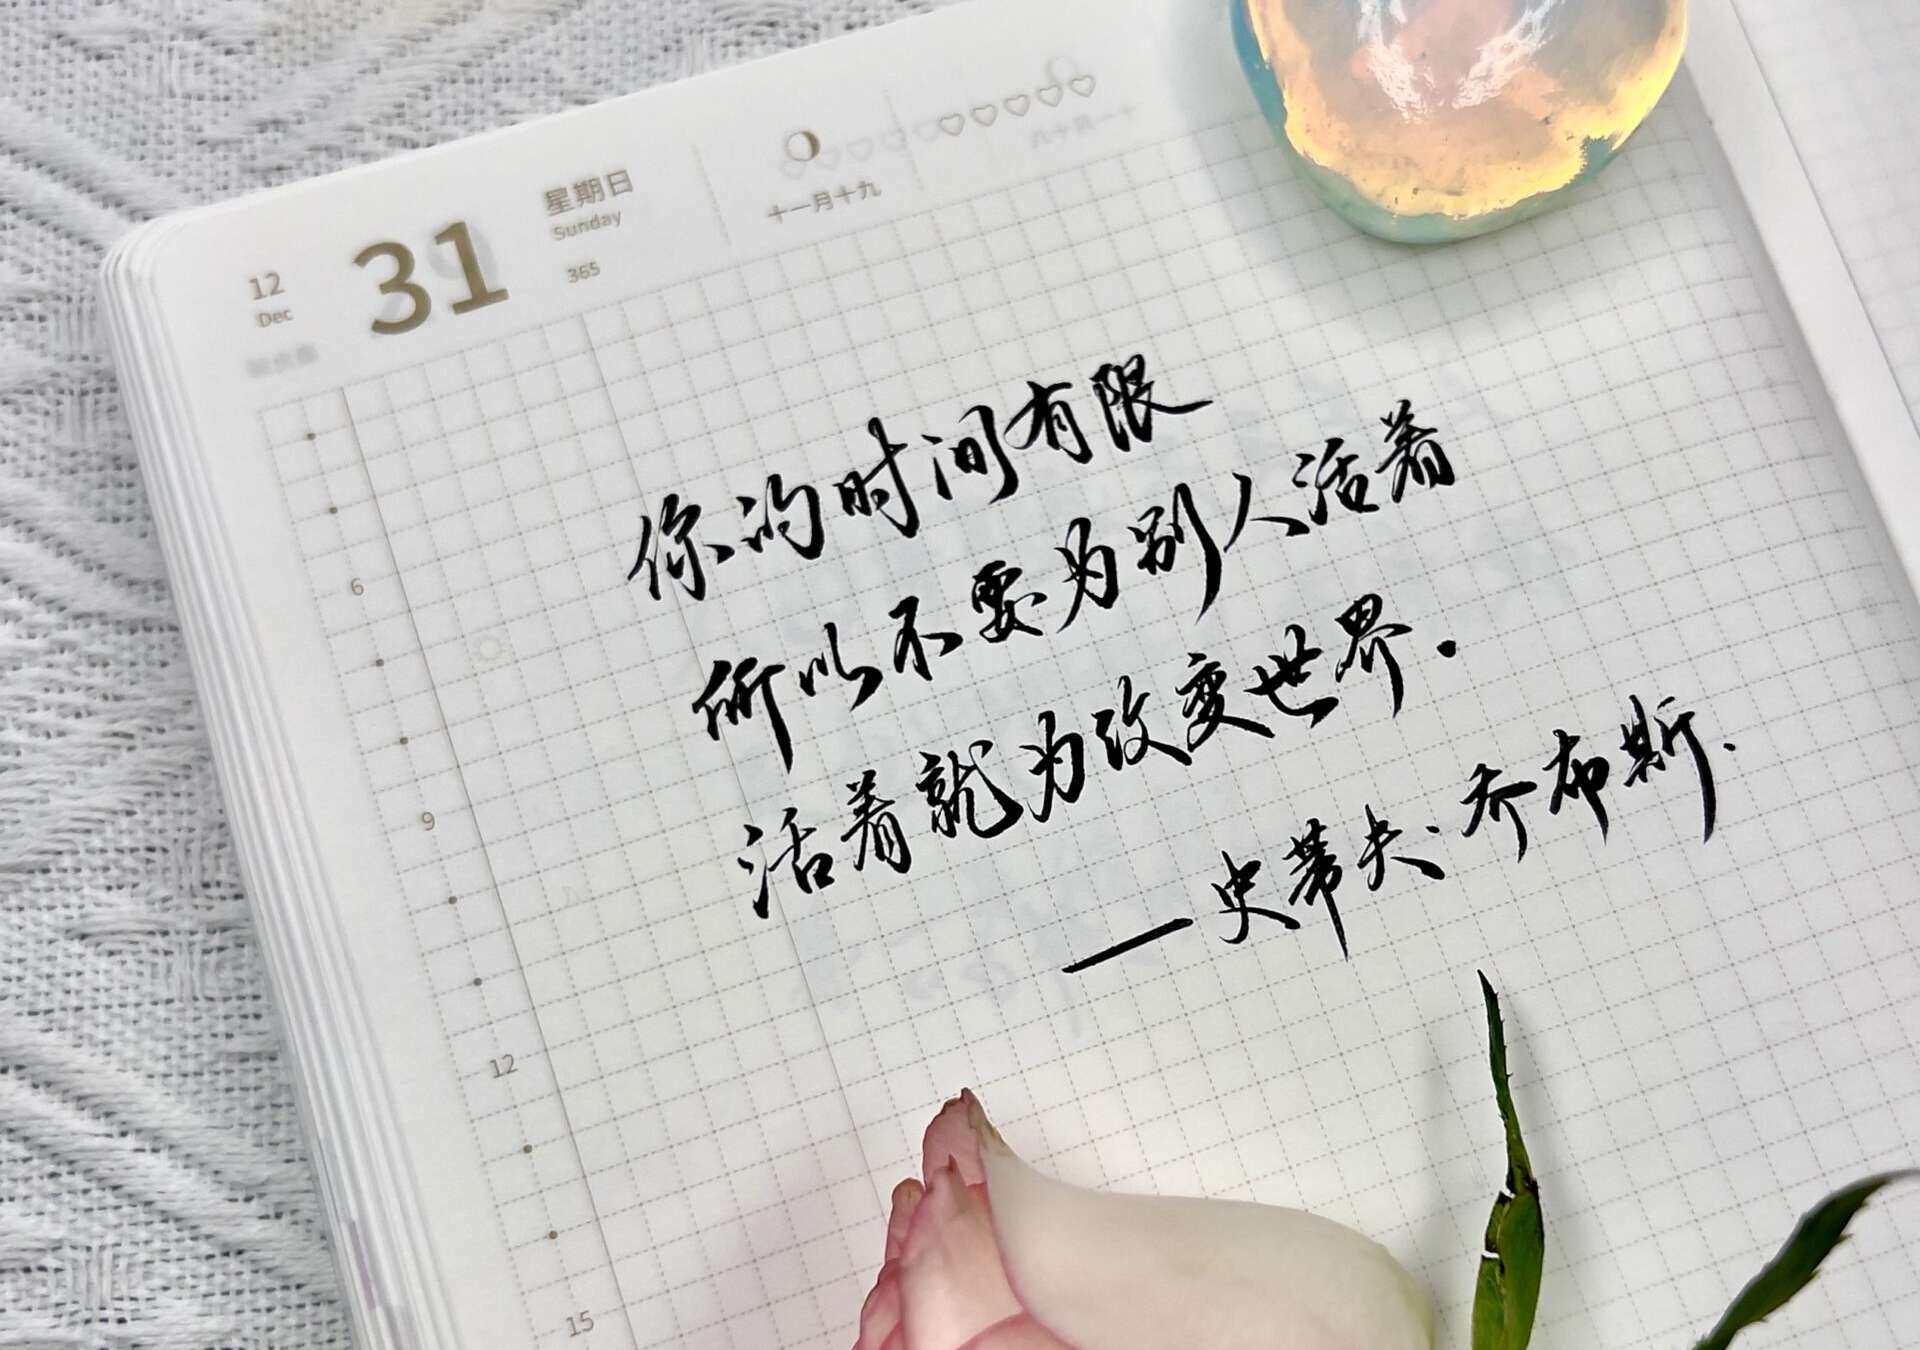 12
Dec
31
星期日
Sunday
365
十一月十九
十一月十八
你的时间有限
所以不要为别人活着
活着就为改变世界.
——史蒂夫·乔布斯.
6
9
12
15